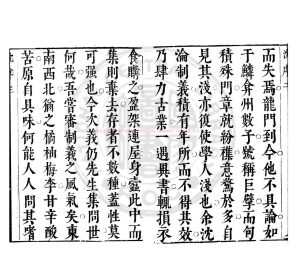 而失焉龍門到今他不具論如
于鱗弇州數子號稱巨擘而句
積殊門章就紛雜意鶩於多自
見其淺亦復使學人淺也余沈
淪制義積有年所而不得其效
乃肆力古業一遇異書輒損衣
食購之盈架連屋身蠧此中而
集則棄去存者不數種蓋性莫
可強也今次義仍先生集問世
何哉吾嘗審制義之風氣矣東
南西北猶之橘柚梅李甘辛酸
苦原自具味何能人人問其嗜